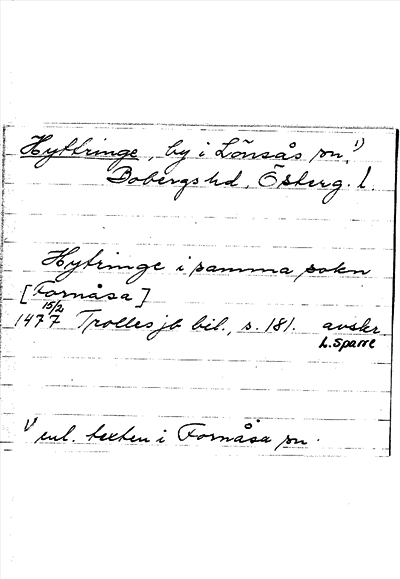 Hyttringe, by i Lönsås sn. 1)
Bobergs hd, Österg. l.
Hytringe i samma sokn
[Fornåsa]
15/2
1477 Trolles jb bil., s. 181. avskr.
L. Sparre
1) enl. texten i Fornåsa sn.